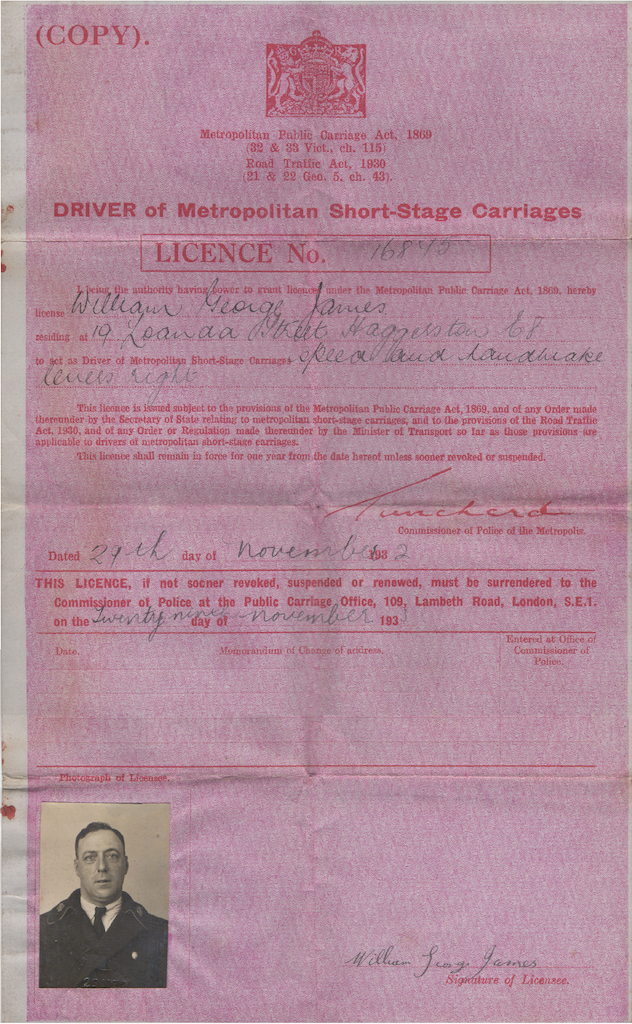 (COPY).
Metropolitan Public Carriage Act, 1869
(32 & 33 Vict., ch. 115)
Road Traffic Act, 1930
(21 & 22 Geo. 5, ch. 43).
DRIVER of Metropolitan Short-Stage Carriages
LICENCE No. 16845
I being the authority having power to grant licences under the Metropolitan Public Carriage Act, 1869, hereby
license William George James
residing at 19, Loanda Street Haggerston E8
to act as Driver of Metropolitan Short-Stage Carriages speed and handbrake
levers right
This licence is issued subject to the provisions of the Metropolitan Public Carriage Act, 1869, and of any Order made
thereunder by the Secretary of State relating to metropolitan short-stage carriages, and to the provisions of the Road Traffic
Act, 1930, and of any Order or Regulation made thereunder by the Minister of Transport so far as those provisions are
applicable to drivers of metropolitan short-stage carriages.
This licence shall remain in force for one year from the date hereof unless sooner revoked or suspended.
Trenchard
Commissioner of Police of the Metropolis.
Dated 29th day of November 1932
THIS LICENCE, if not sooner revoked, suspended or renewed, must be surrendered to the
Commissioner of Police at the Public Carriage Office, 109, Lambeth Road, London, S.E.1.
on the Twenty nine day of November 1933
Date. Memorandum of Change of address. Entered at Office of
Commissioner of
Police.
Photograph of Licensee.
William George James
Signature of Licensee.